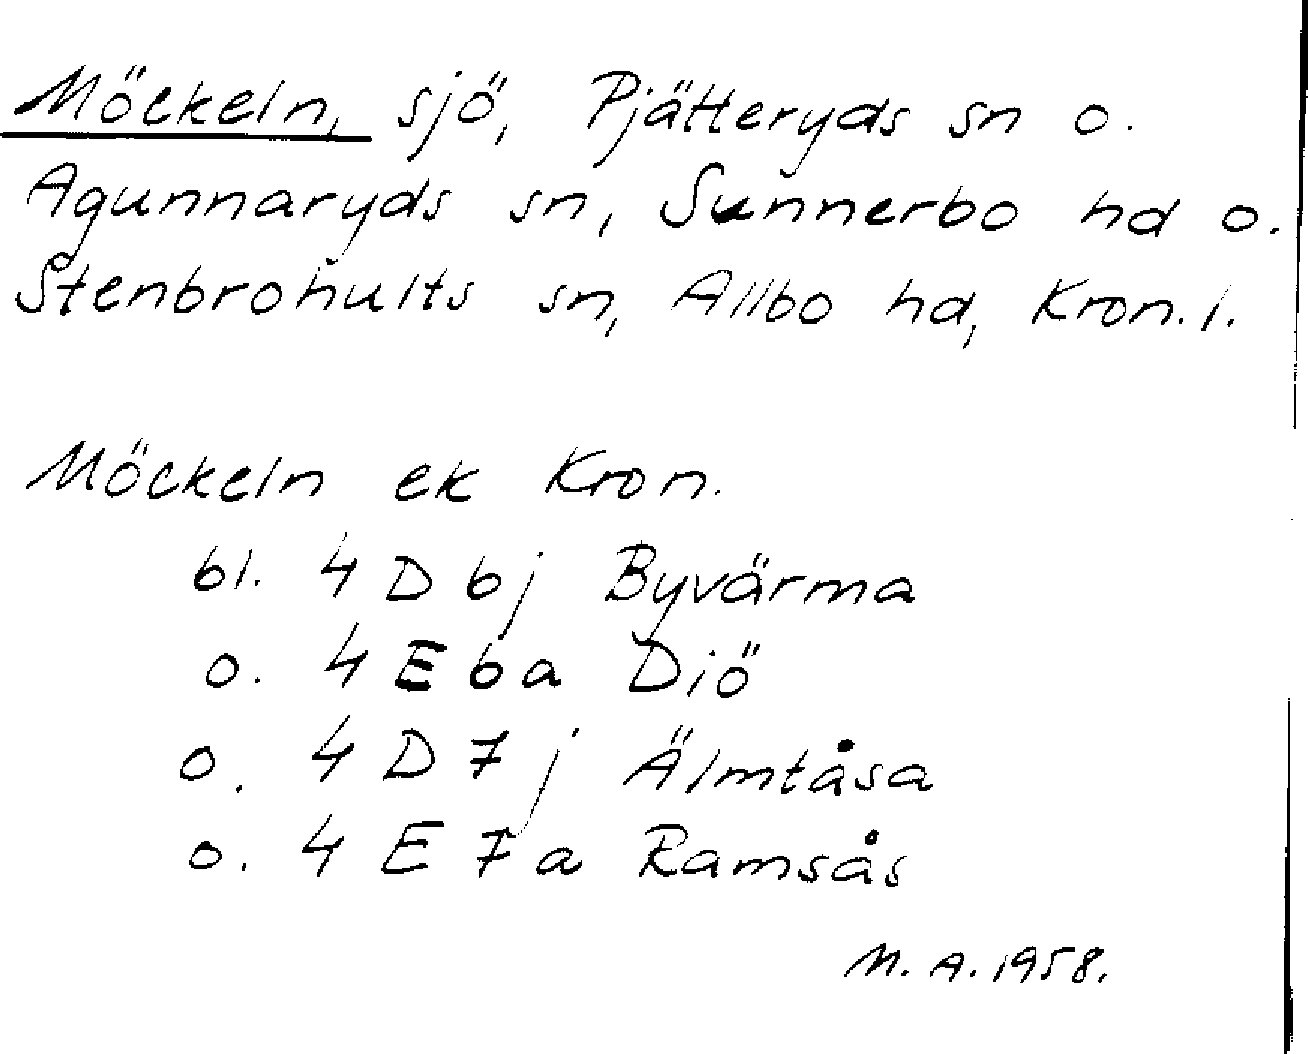 Möckeln, sjö, Pjätteryds sn o.
Agunnaryds sn, Sunnerbo hd o.
Stenbrohults sn, Allbo hd, Kron. l.
Möckeln ek Kron.
bl. 4 D 6j Byvärma
o. 4 E 6a Diö
o. 4 D 7j Älmtåsa
o. 4 E 7a Ramsås
M. A. 1958.